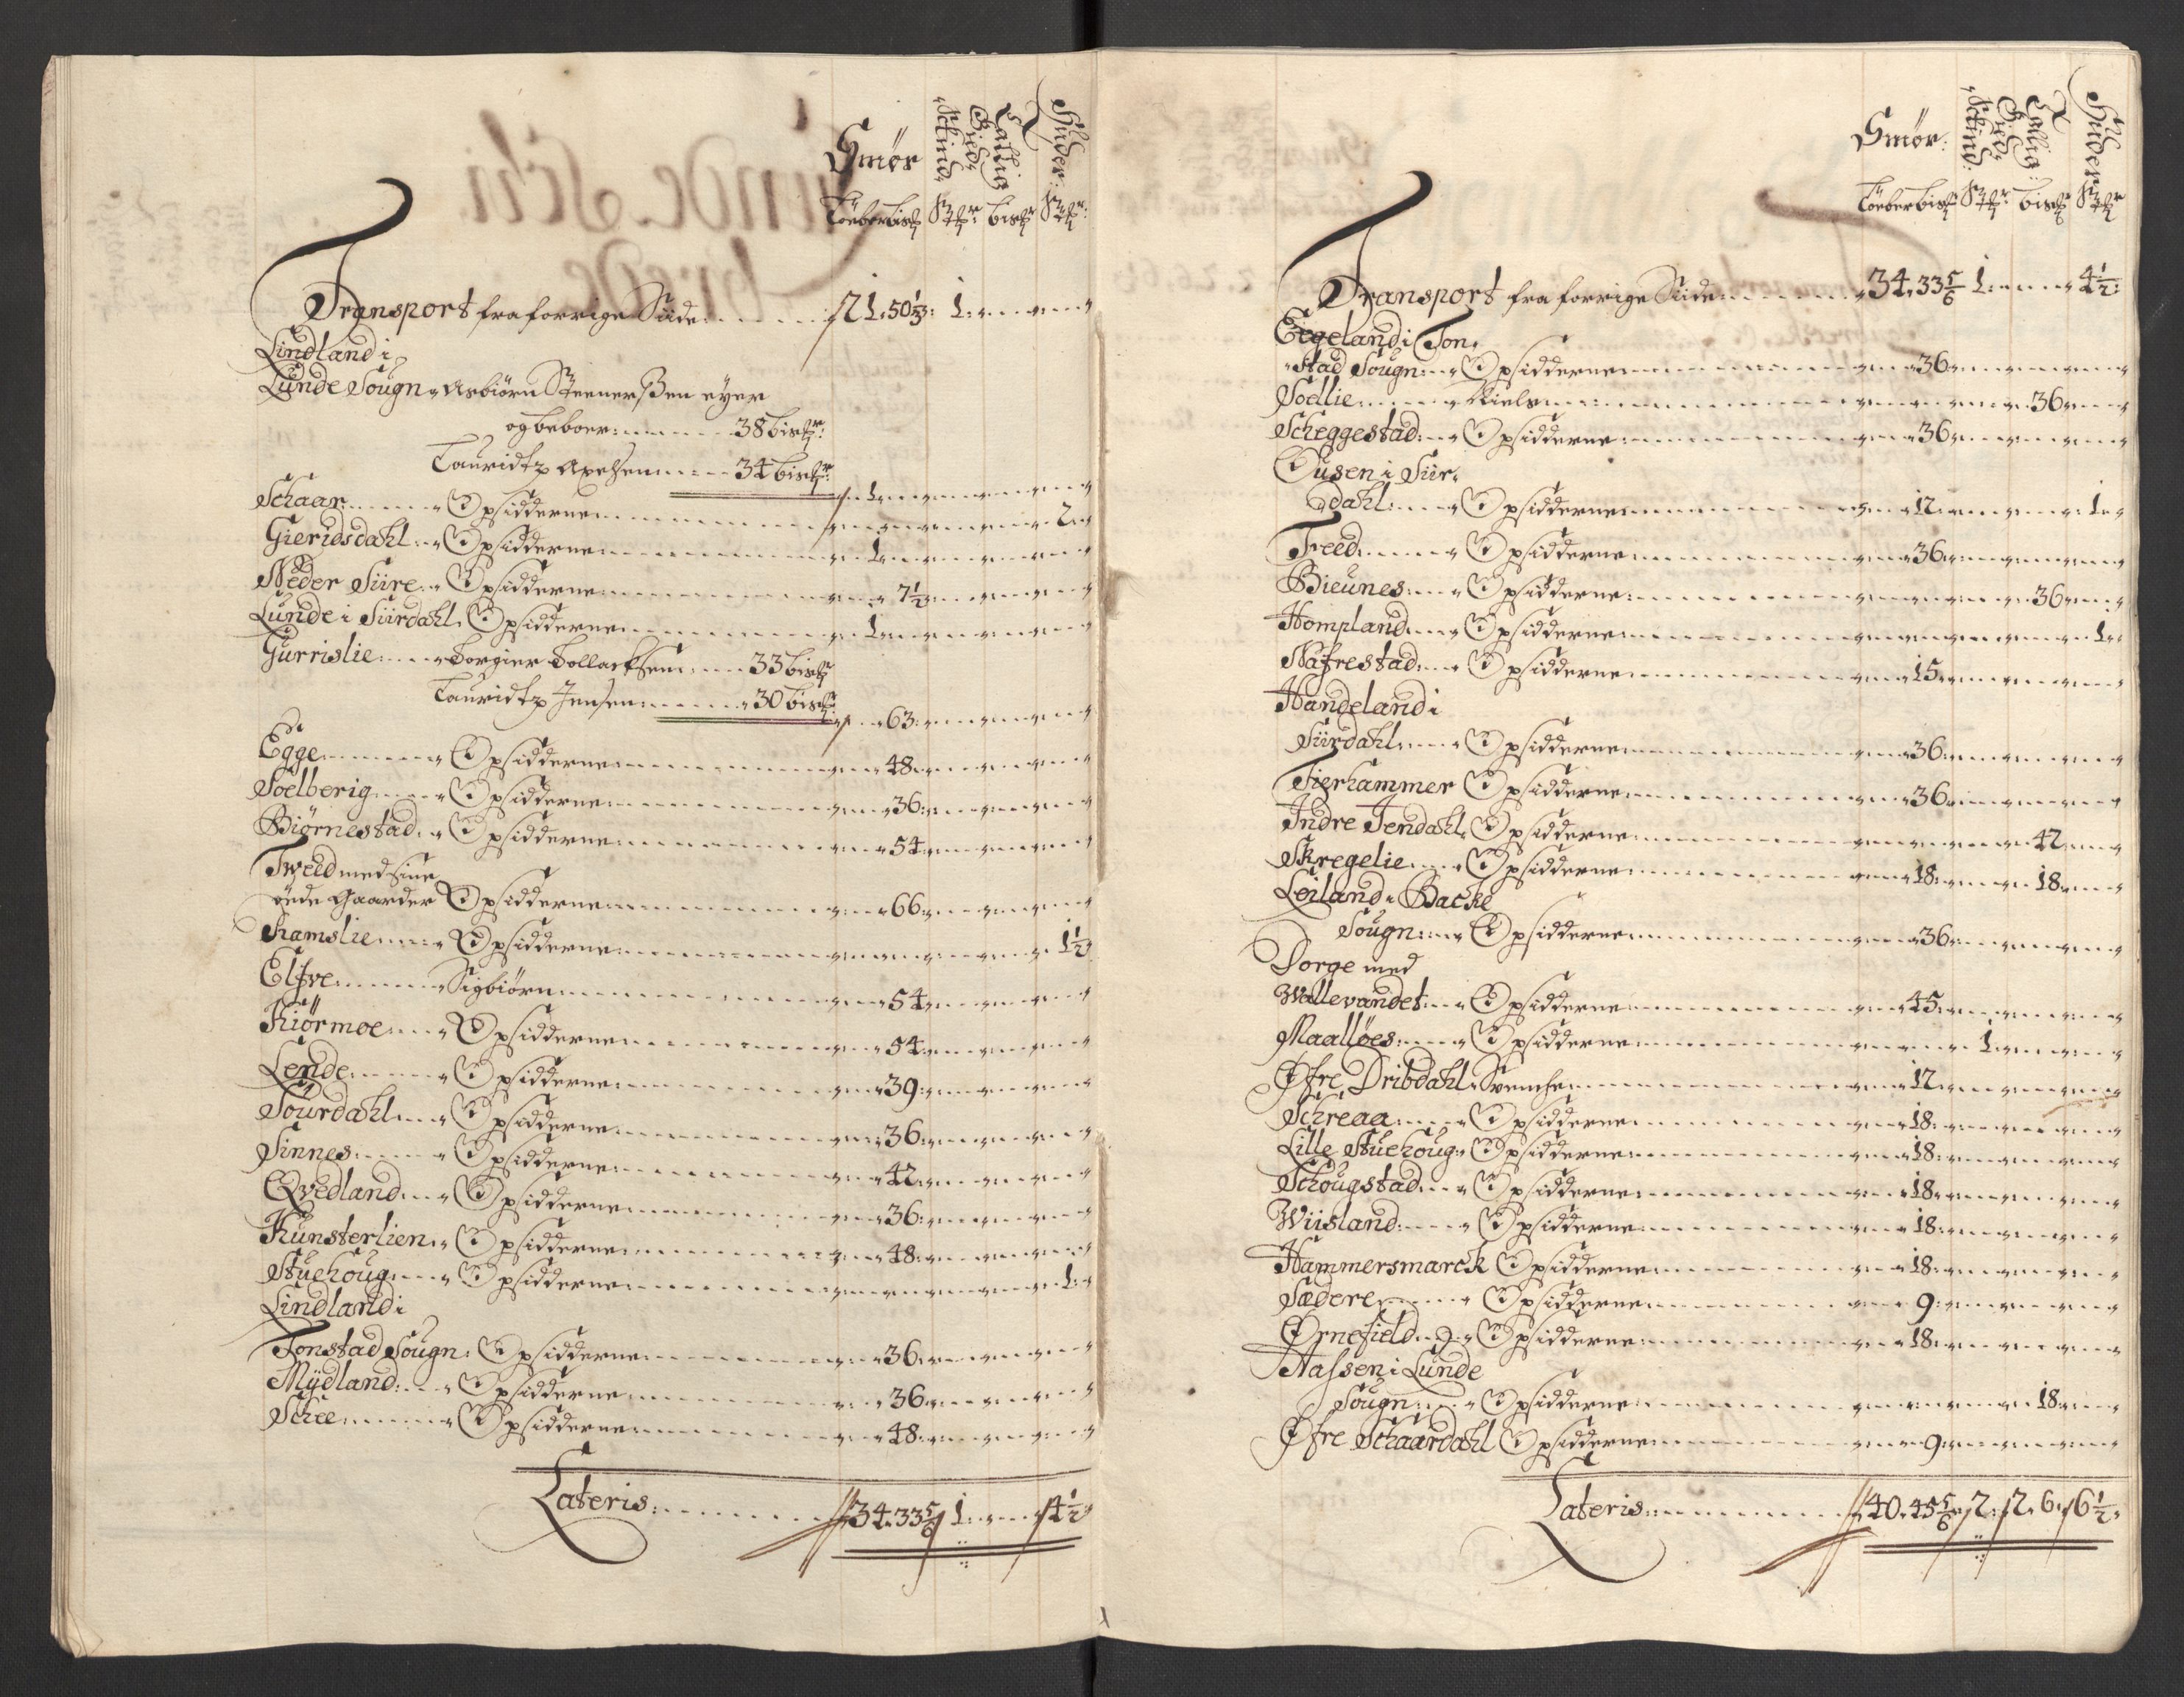 Smør
Giedskind
Tallig
Huder:
Løeber bisl St bisl St
Transport fra forrige Siide 21. 50 1/3: 1
Lindland i
Lunde Sougn Asbiørn Steenersßen eyer
og beboer: 38 bisl
Lauridtz Axelsen 34 bisl
1
Schaar Opsidderne 2
Gieridsdahl Opsidderne 1
Neder Siire Opsidderne 7 1/2
Lunde i Siirdahl Opsidderne 1
Gurrislie Torgier Tollacksen 33 bisl
Lauridtz Jensen 30 bisl
63
Egge Opsidderne 48
Soelberig Opsidderne 36
Biørnestad Opsidderne 54
Tweld med sine
øede Gaarder Opsidderne 66
Ramslie Opsidderne 1 1/2
Elfve Sigbiørn 54
Kiörmoe Opsidderne 54
Lende Opsidderne 39
Sourdahl Opsidderne 36
Sinnes Opsidderne 42
Qvedland Opsidderne 36
Kunsterlien Opsidderne 48
Stuehoug Opsidderne 1
Lindland i
Tonstad Sougn Opsidderne 36
Mydland Opsidderne 36
Schee Opsidderne 48
Lateris: 34. 33 5/6 1 4 1/2
Smør:
Giedskind
Tallig
Huder
Løeber bisl St bisl St
Transport fra forrige Siide 34. 33 5/6 1 4 1/2
Egeland i Ton-
stad Sougn Opsidderne 36
Soellie Niels 36
Scheggestad Opsidderne 36
Ousen i Siir-
dahl Opsidderne 12 1
Freed Opsidderne 36
Bieunes Opsidderne 36
Hompland Opsidderne 1
Nafrestad Opsidderne 15
Handeland i
Siirdahl Opsidderne 36
Fierhammer Opsidderne 36
Indre Tendahl Opsidderne 42
Skregelie Opsidderne 18 18
Leiland i Backe
Sougn Opsidderne 36
Dorge med
Wallevandet Opsidderne 45
Maalløes Opsidderne 1
Øfre Dribdahl Svenche 12
Schreaa Opsidderne 18
Lille Stuehoug Opsidderne 18
Schougstad Opsidderne 18
Wiisland Opsidderne 18
Hammersmarck Opsidderne 18
Sædere Opsidderne 9
Ørnefield Opsidderne 18
Aassen i Lunde
Sougn Opsidderne 18
Øfre Schaardahl Opsidderne 9
Lateris: 40. 45 5/6 2 2. 6 6 1/2